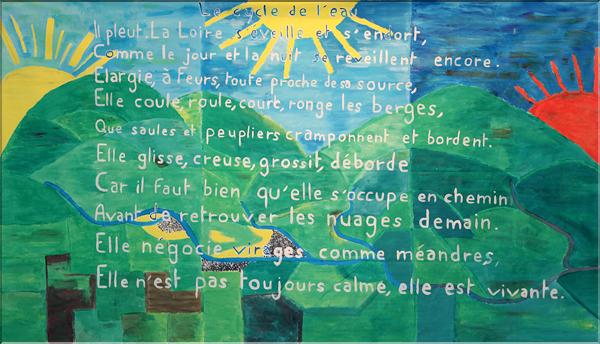 Le cycle de l'eau
Il pleut. La Loire s'éveille et s'endort,
Comme le jour et la nuit se réveillent encore.
Elargie, à Feurs, toute proche de sa source,
Elle coule, roule, court, ronge les berges,
Que saules et peupliers cramponnent et bordent.
Elle glisse, creuse, grossit, déborde
Car il faut bien qu'elle s'occupe en chemin
Avant de retrouver les nuages demain.
Elle négocie virages comme méandres,
Elle n'est pas toujours calme, elle est vivante.